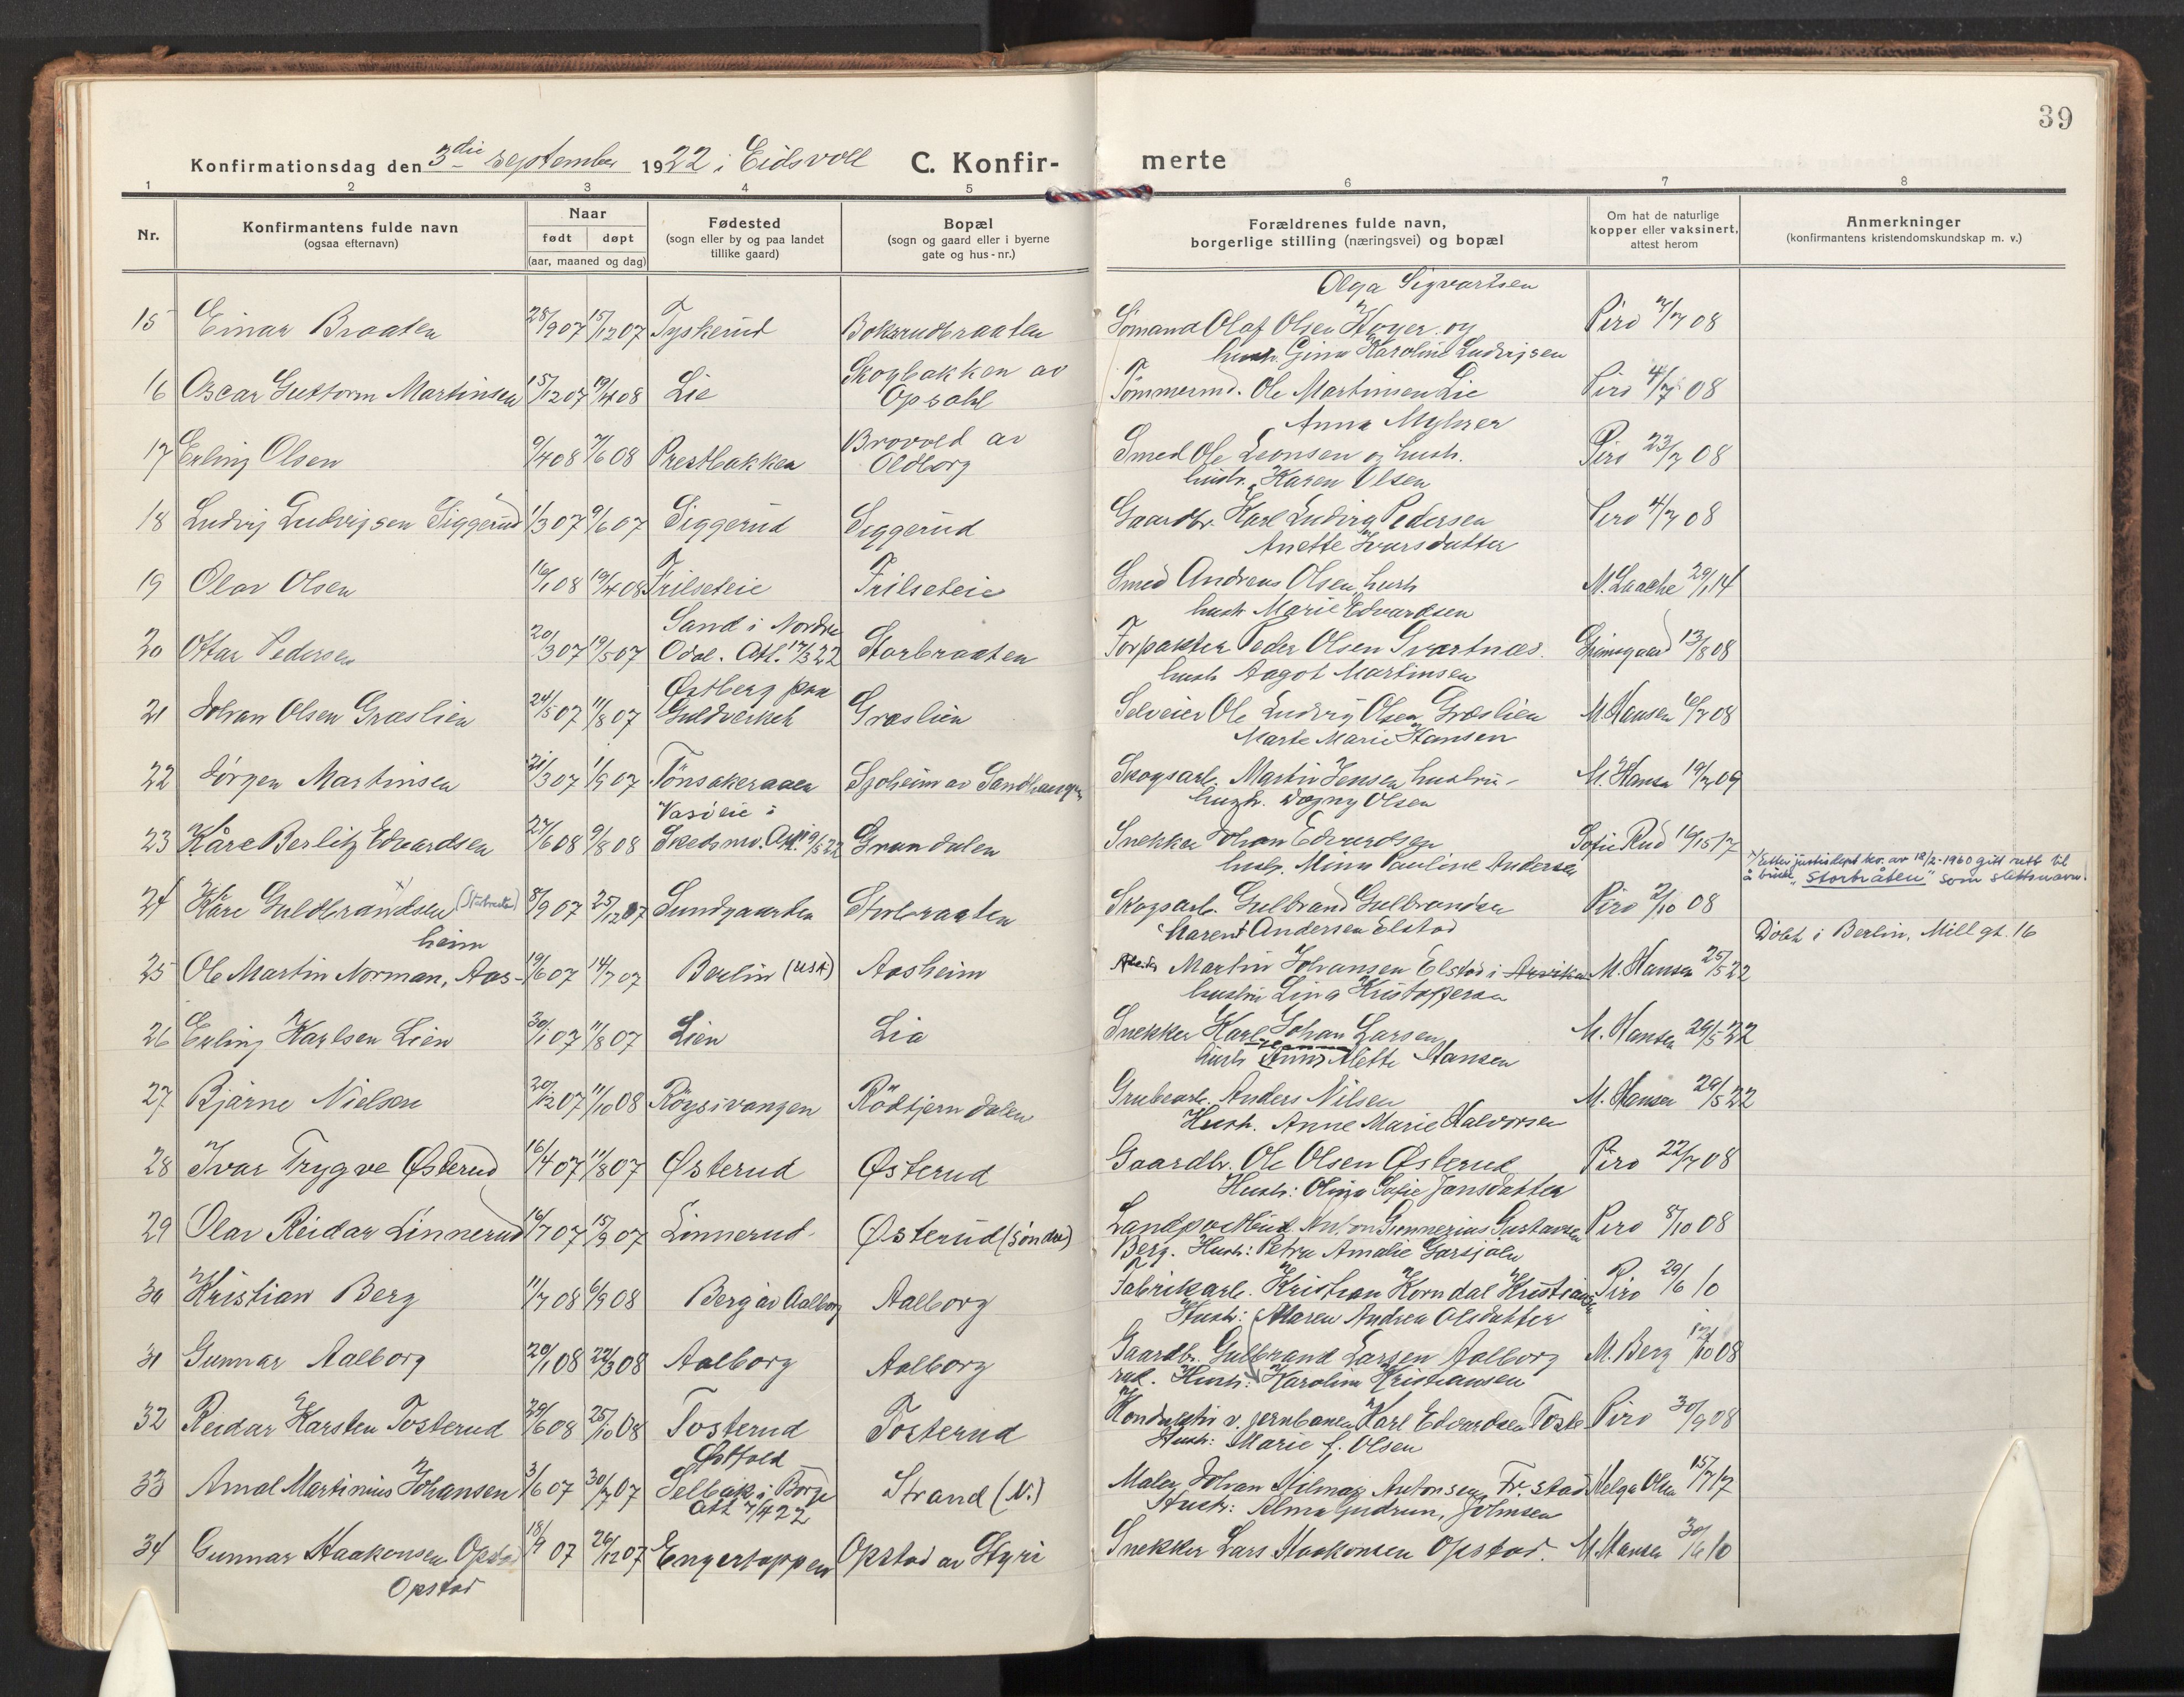 39
Konfirmationsdag den 3die september 1922 i Eidsvoll C. Konfir-
merte
1 2 3 4 5 6 7 8
Nr.
Konfirmantens fulde navn
(ogsaa efternavn)
Naar
født døpt
(aar, maaned og dag)
Fødested
(sogn eller by og paa landet
tillike gaard)
Bopæl
(sogn og gaard eller i byerne
gate og hus-nr.)
Forældrenes fulde navn,
borgerlige stilling (næringsvei) og bopæl
Om hat de naturlige
kopper eller vaksinert,
attest herom
Anmerkninger
(konfirmantens kristendomskundskap m. v.)
Olga Sigvartsen
15 Einar Braaten 28/9 07 15/12 07 Tyskerud Bokerudbraaten Sømand Olaf Olsen Høyer og Piro 7/7 08
hustr. Gina Karoline Ludvigsen
Skogbakken av
16 Oscar Guttorm Martinsen 15/12 07 19/4 08 Lie Opsahl Tømmermd. Ole Martinsen Lie Piro 4/7 08
Anna Myhrer
Brovold av
17 Erling Olsen 9/4 08 7/6 08 Prestbakken Oldborg Smed Ole Leonsen og hustr. Piro 23/7 08
hustr. Karen Olsen
18 Ludvig Ludvigsen Siggerud 1/3 07 9/6 07 Siggerud Siggerud Gaardbr. Karl Ludvig Pedersen Piro 4/7 08
Anette Ivarsdatter
19 Olav Olsen 16/1 08 19/4 08 Trilseteie Trilseteie Smed Andreas Olsen, hustr M. Laache 29/1 14
hustr. Marie Edvardsen
Sand i Nordre
20 Ottar Pedersen 20/3 07 19/5 07 Odal. Att. 17/3 22 Storbraaten Forpakter Peder Olsen Svartnæs. Grimsgaard 13/8 08
hustr Aagot Martinsen
Østberg paa
21 Johan Olsen Græslien 24/5 07 11/8 07 Guldverket Græslien Selveier Ole Ludvig Olsen Græslien M. Hansen 6/7 08
Marte Marie Hansen
22 Jørgen Martinsen 21/3 07 1/9 07 Tønsakeraaen Sjoheim av Skogsarb. Martin Jensen hustru - M. Hansen 19/7 09
hustr. Dagny Olsen
Vasseie i
23 Kåre Berlitz Edvardsen 27/6 08 9/8 08 Skedsmo. Att. 9/5 22 Grundalen Snekker Johan Edvardsen Sofie Rud 16/15 17
hustr. Mina Pauline Andersen
x/ Etter justisdept. bev. av 12/2-1960 gitt rett til
å bruke "Storbråten" som slektsnavn.
24 Kåre Guldbrandsen x) (Storbraaten) 8/9 07 25/12 07 Sundgaarden Storbraaten Skogsarb. Gulbrand Gulbrandsen Piro 2/10 08
Maren Andersen Elstad
Døbt i Berlin, Mill gt. 16
heim
25 Ole Martin Norman, Aas- 19/6 07 14/7 07 Berlin (USA) Aasheim Martin Johansen Elstad i M. Hansen 25/5 22
hustru Lina Kristoffersen
26 Erling Karlsen Lien 30/1 07 11/8 07 Lien Lia Snekker Karl Johan Larsen, M. Hansen 29/5 22
hustr Anna Mette Hansen
27 Bjarne Nielsen 20/12 07 11/10 08 Røysivangen Rødtjerndalen Grubearb. Anders Nilsen M. Hansen 29/5 22
Hustr. Anne Marie Halvorsen
28 Ivar Trygve Østerud 16/4 07 11/8 07 Østerud Østerud Gaardbr. Ole Olsen Østerud Piro 22/7 08
Hustr: Olina Sofie Jansdatter
29 Olav Reidar Linnerud 16/7 07 15/9 07 Linnerud Østerud (søndre) Landpostbud Anton Gunnerius Gustavsen Piro 8/10 08
Berg. Hustr: Petra Amalie Garsjølen
30 Kristian Berg 11/7 08 6/9 08 Berg av Aalborg Aalborg Fabrikarb. Kristian Korndal Kristiansen Piro 29/6 10
Hustr: Maren Andrea Olsdatter
31 Gunnar Aalborg 20/1 08 22/3 08 Aalborg Aalborg Gaardbr. Gulbrand Larsen Aalborg M. Berg 12/10 08
rud. Hustr: Karoline Kristiansen
32 Reidar Karsten Tosterud 29/6 08 25/10 08 Tosterud Tosterud Konduktør v. jernbanen Karl Edvardsen Toste Piro 30/9 08
Hustr: Marie f. Olsen
Østfold
33 Arnal Martinius Johansen 3/6 07 30/7 07 Selbak i Borge Strand (N.) Maler Johan Hilmar Antonsen Fr.stad Helga Olsen 15/7 17
Att 7/4 22
Hustr: Alma Gudrun, Johnsen
34 Gunnar Haakonsen Opstad 18/9 07 26/12 07 Engertoppen Opstad av Styri Snekker Lars Haakonsen Opstad. M. Hansen 30/6 10
Opstad